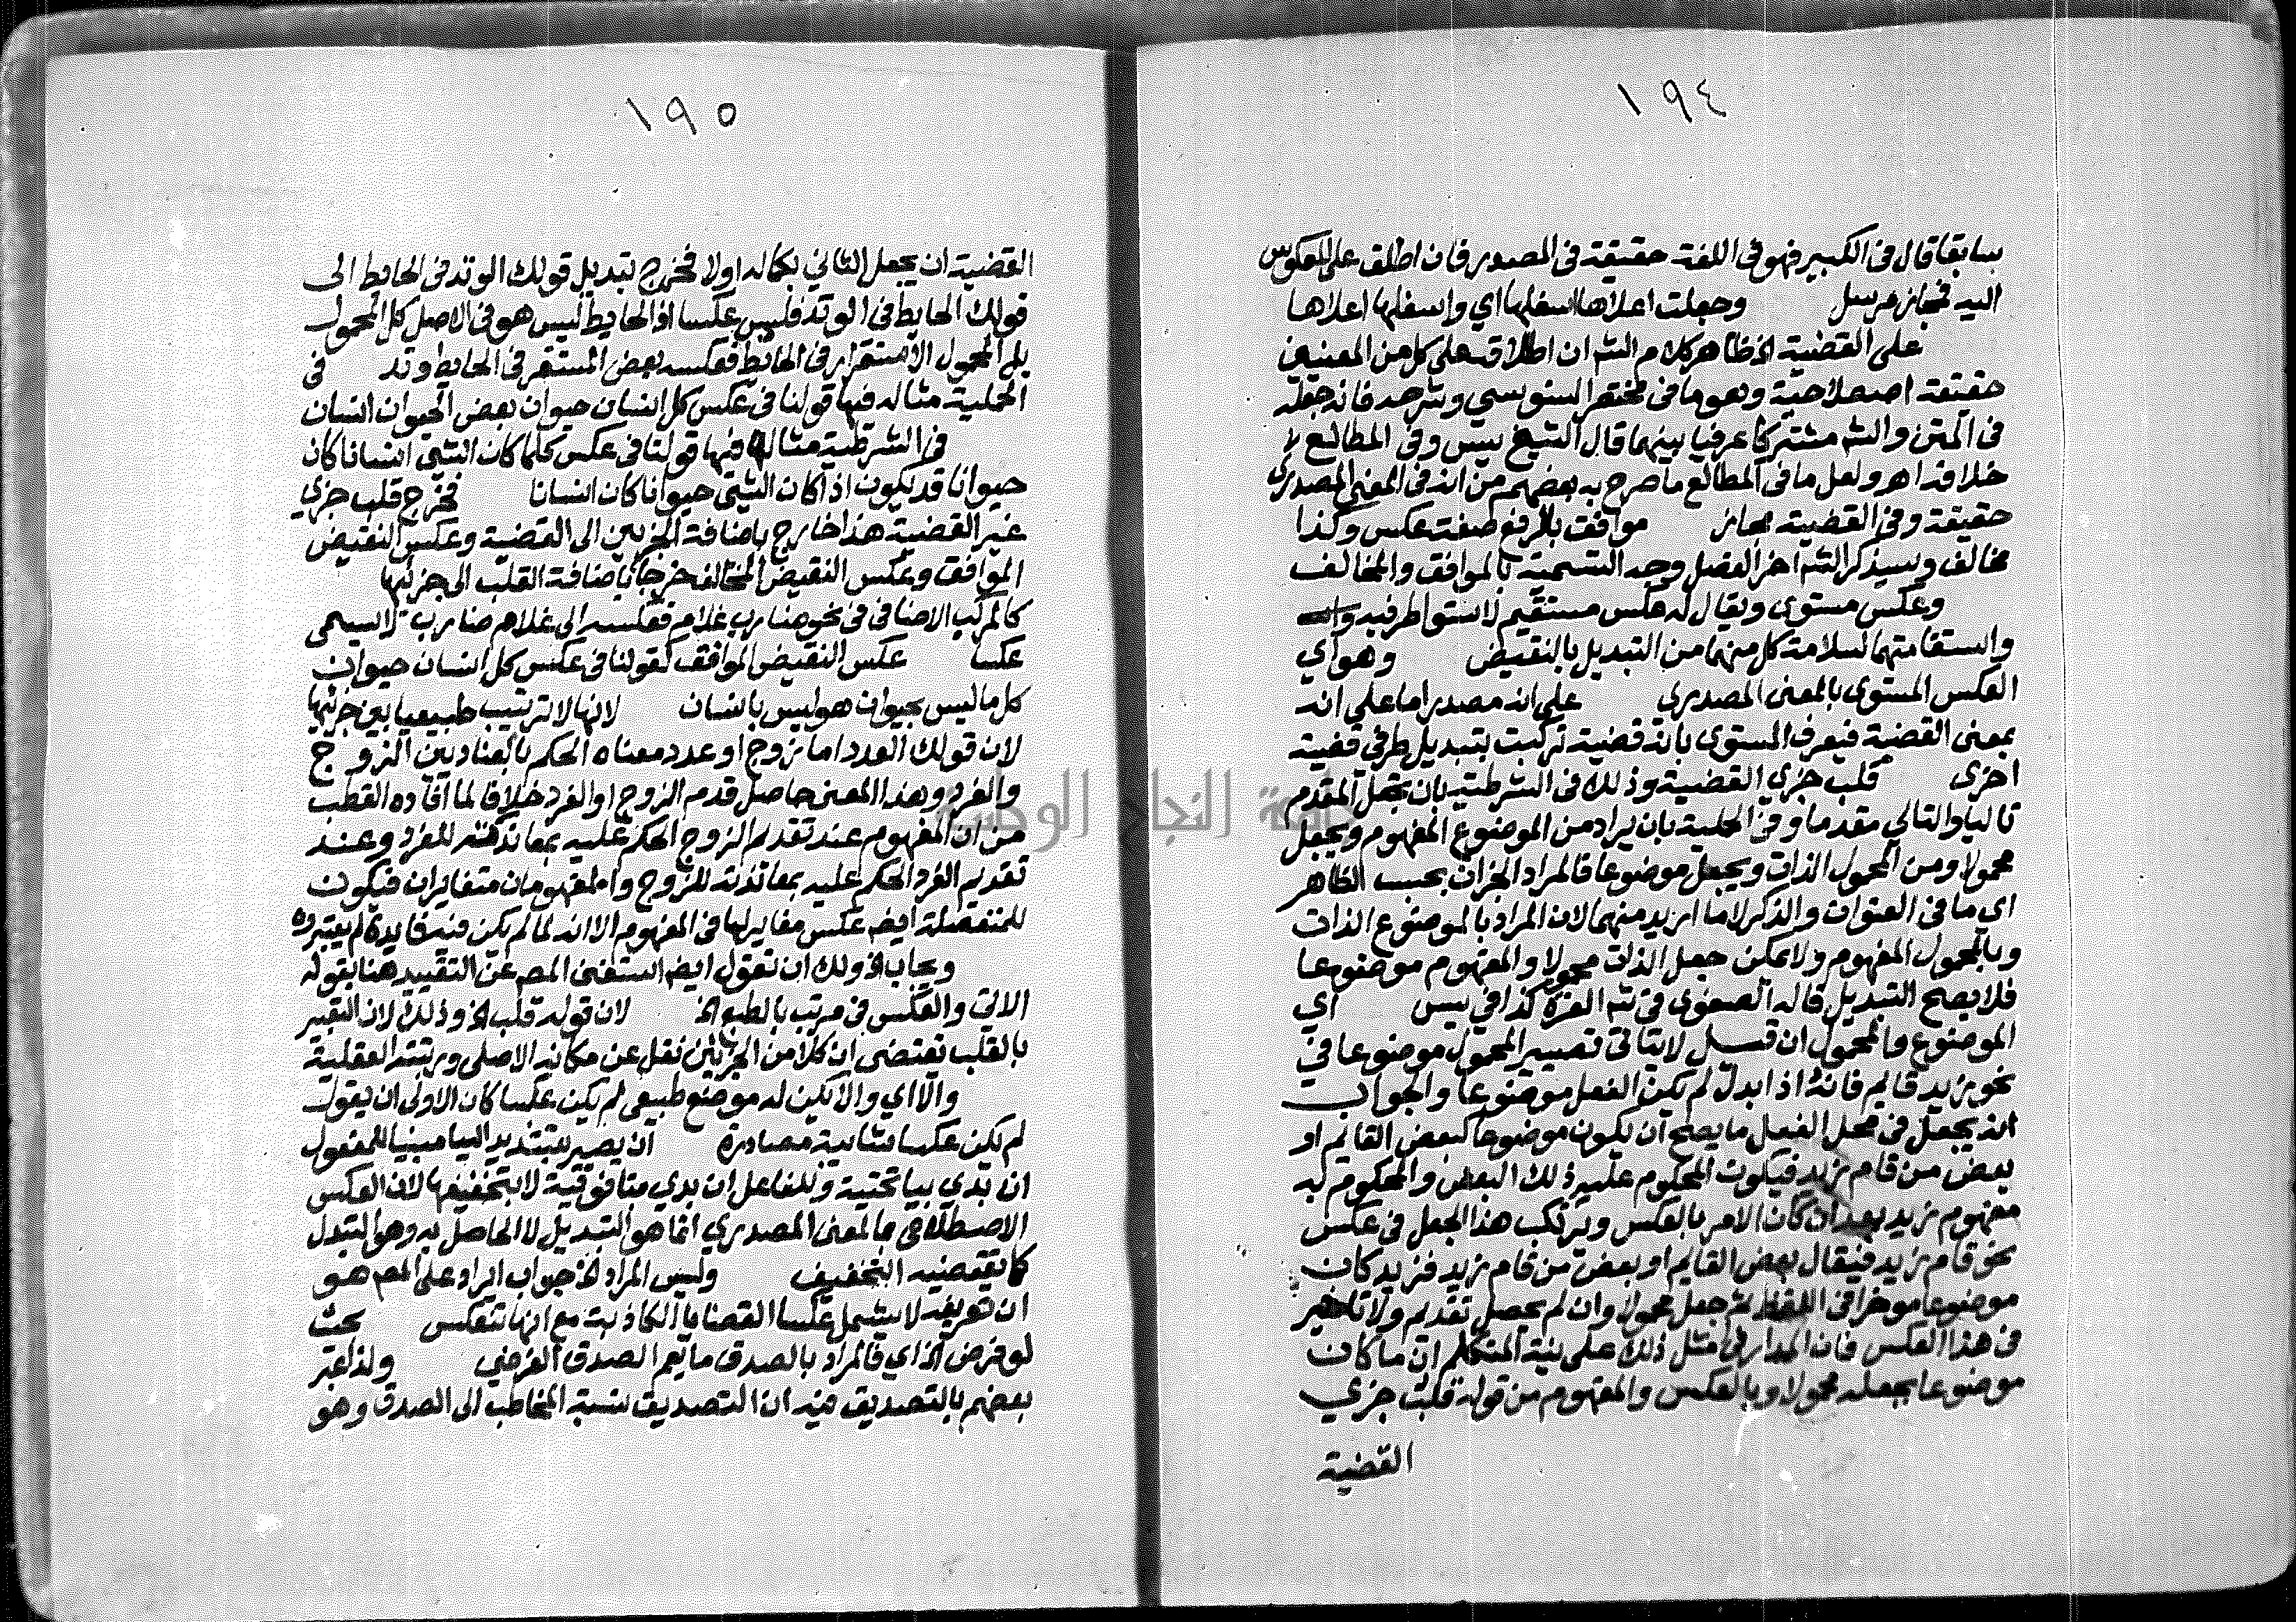 ١٩٤
سابقا قال في الكبير فهو في اللغة حقيقة في المصدر فان اطلق على المعكوس
اليه فمجاز مرسل وجعلت اعلاها اسفلها اي واسفلها اعلاها
على القضية الخ ظاهر كلام الشه ان اطلاقه على كل من المعنيين
حقيقة اصطلاحية وهو ما في مختصر السنوسي وشرحه فانه جعله
في المتن والشه مشتركا عرفيا بينهما قال الشيخ يس وفي المطالع لا
خلافه اهـ ولعل ما في المطالع ما صرح به بعضهم من انه في المعنى المصدري
حقيقة وفي القضية مجاز موافق بالرفع صفة عكس وكذا
مخالف وسيذكر الشه اخر الفصل وجه التسمية بالموافق والمخالف
وعكس مستوى ويقال له عكس مستقيم لاستوا طرفيه
واستقامتهما لسلامة كل منهما من التبديل بالنقيض وهو اي
العكس المستوى بالمعنى المصدرى على انه مصدر اما على انه
بمعنى القضية فيعرف المستوى بانه قضية تركبت بتبديل طرفي قضية
اخرى قلب جزي القضية وذلك في الشرطية بان تجعل المقدم
تاليا والتالي مقدما وفي الحملية بان يراد من الموضوع المفهوم ويجعل
محمولا ومن المحمول الذات ويجعل موضوعا فالمراد الجزان بحسب الظاهر
اي ما في العنوان والذكر لا ما اريد منهما لان المراد بالموضوع الذات
وبالمحمول المفهوم ولا يمكن جعل الذات محمولا والمفهوم موضوعا
فلا يصح التبديل قاله الصفوى في شه الغرة كذا في يس اي
الموضوع والمحمول ان قيل لا يتاتى تصيير المحمول موضوعا في
نحو زيد قايم فانه اذا ابدل لم يكن الفعل موضوعا والجواب
انه يجعل في محل الفعل ما يصح ان يكون موضوعا كبعض القايم او
بعض من قام زيد فيكون المحكوم عليه ذلك البعض والمحكوم به
مفهوم زيد بعد ان كان الامر بالعكس ويرتكب هذا الجعل في عكس
نحو قام زيد فيقال بعض القايم او بعض من قام زيد فزيد كان
موضوعا موخرا في اللفظ ثم جعل محمولا وان لم يحصل تقديم ولا تاخير
في هذا العكس فان المدار في مثل ذلك على نية المتكلم ان ما كان
موضوعا يجعله محمولا وبالعكس والمفهوم من قوله قلب جزي
القضية
١٩٥
القضية ان يجعل الثاني بكماله اولا فخرج تبديل قولك الوتد في الحايط الى
قولك الحايط في الوتد فليس عكسا اذ الحايط ليس هو في الاصل كل المحمول
بل المحمول الاستقرار في الحايط فعكسه بعض المستقر في الحايط وتد في
الحملية مثاله فيها قولنا في عكس كل انسان حيوان بعض الحيوان انسان
في الشرطية مثاله فيها قولنا في عكس كلما كان الشي انسانا كان
حيوانا قد يكون اذا كان الشي حيوانا كان انسانا فخرج قلب جزي
غير القضية هذا خارج باضافة الجزيين الى القضية وعكس النقيض
الموافق وعكس النقيض المخالف خرجا باضافة القلب الى جزئيها
كالمركب الاضافي في نحو ضارب غلام فعكسه الى غلام ضارب لا يسمى
عكسا عكس النقيض الموافق كقولنا في عكس كل انسان حيوان
كل ما ليس بحيوان هو ليس بانسان لانها لا ترتيب طبيعيا بين جزئيها
لان قولك العدد اما زوج او عدد معناه الحكم بالعناد بين الزوج
والفرد وهذا المعنى حاصل قدم الزوج او الفرد خلافا لما افاده القطب
من ان المفهوم عند تقديم الزوج الحكم عليه بمعاندته للفرد وعند
تقديم الفرد الحكم عليه بمعاندته للزوج والمفهومان متغايران فيكون
للمنفصلة ايضه عكس مغاير لها في المفهوم الا انه لما لم يكن فيه فايدة لم يعتبروه
ويجاب الخ ولك ان تقول ايضه استغنى المصه عن التقييد هنا بقوله
الاتي والعكس في مرتب بالطبع الخ لان قوله قلب الخ وذلك لان التعبير
بالقلب يقتضى ان كلا من الجزئين نقل عن مكانه الاصلى ورتبته العقلية
والا اي والا يكن له موضع طبيعى لم يكن عكسا كان الاولى ان يقول
لم يكن عكسا مصادرة ان يصير بتشديد اليا مبنيا للمفعول
ان بدي بيا تحتية وللفاعل ان بدي بتا فوقية لا بتخفيفها لان العكس
الاصطلاحي بالمعنى المصدري انما هو التبديل لا الحاصل به وهو التبدل
كما يقتضيه التخفيف وليس المراد الخ جواب ايراد على المصه هو
ان تعريفه لا يشمل عكسا القضايا الكاذبة مع انها تنعكس بحيث
لو فرض الخ اي فالمراد بالصدق ما يعم الصدق الفرضي ولذا عبر
بعضهم بالتصديق فيه ان التصديق نسبة المخاطب الى الصدق وهو
جامعة النجاح الوطنية